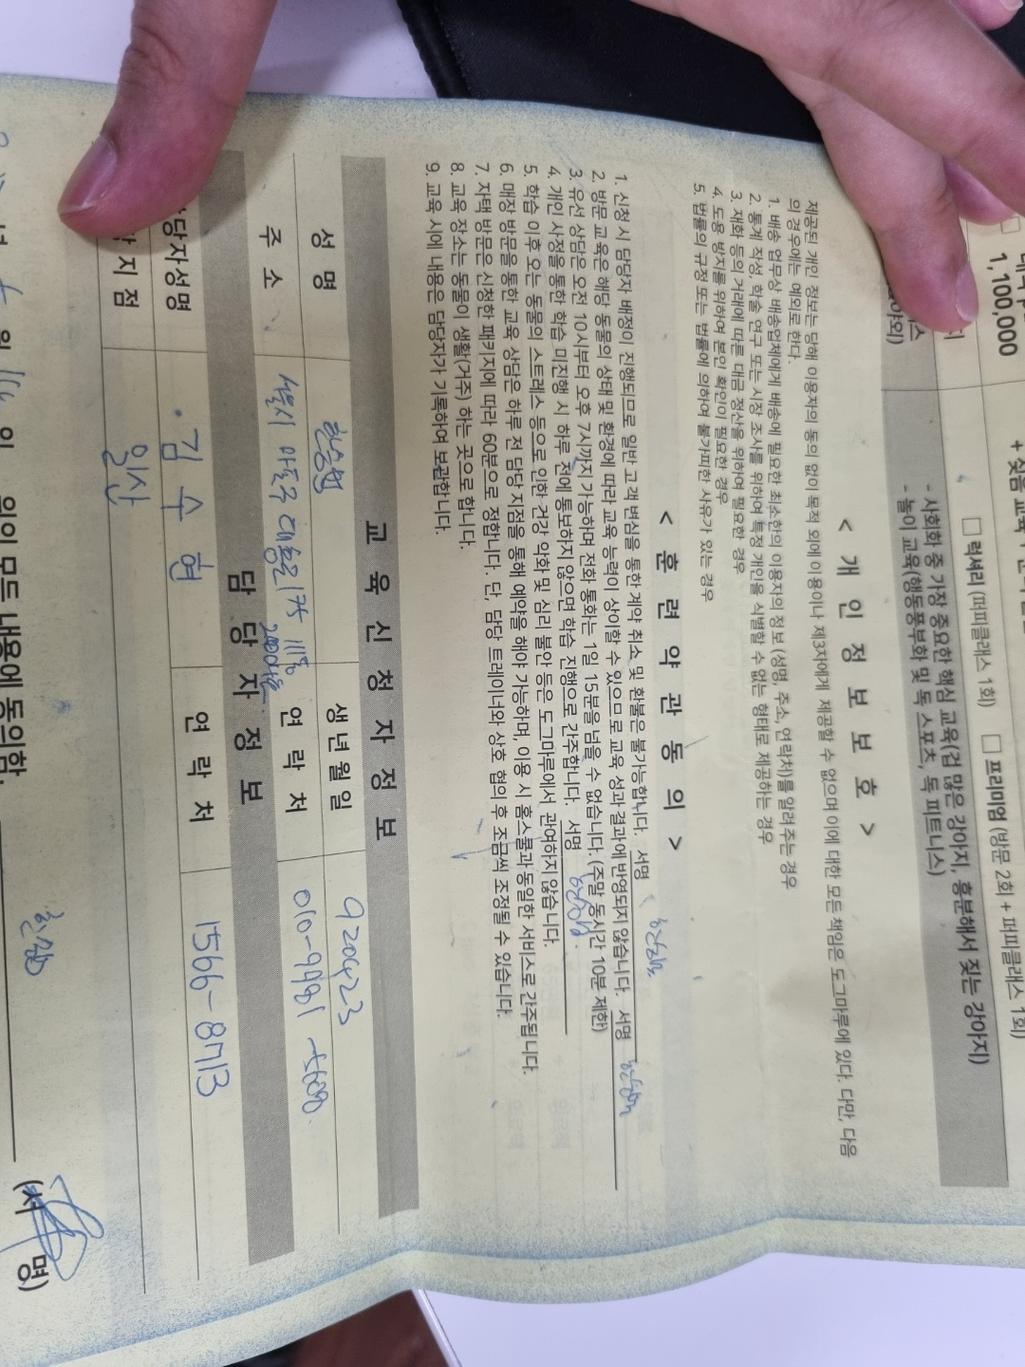 1,100,000
□ 럭셔리 (퍼피클래스 1회) □ 프리미엄 (방문 2회 + 퍼피클래스 1회)
- 사회화 중 가장 중요한 핵심 교육(겁 많은 강아지, 흥분해서 짖는 강아지)
- 놀이 교육(행동풍부화 및 독 스포츠, 독 피트니스)
< 개 인 정 보 보 호 >
제공된 개인 정보는 당해 이용자의 동의 없이 목적 외에 이용이나 제3자에게 제공할 수 없으며 이에 대한 모든 책임은 도그마루에 있다. 다만, 다음
의 경우에는 예외로 한다.
1. 배송 업무상 배송업체에게 배송에 필요한 최소한의 이용자의 정보 (성명, 주소, 연락처)를 알려 주는 경우
2. 통계 작성, 학술 연구 또는 시장 조사를 위하여 특정 개인을 식별할 수 없는 형태로 제공하는 경우
3. 재화 등의 거래에 따른 대금 정산을 위하여 필요한 경우
4. 도용 방지를 위하여 본인 확인이 필요한 경우
5. 법률의 규정 또는 법률에 의하여 불가피한 사유가 있는 경우
< 훈 련 약 관 동 의 >
1. 신청 시 담당자 배정이 진행되므로 일반 고객 변심을 통한 계약 취소 및 환불은 불가능합니다. 서명
2. 방문 교육은 해당 동물의 상태 및 환경에 따라 교육 능력이 상이할 수 있으므로 교육 성과 결과에 반영되지 않습니다. 서명
3. 유선 상담은 오전 10시부터 오후 7시까지 가능하며 전화 통화는 1일 15분을 넘을 수 없습니다. (주말 동시간 10분 제한)
4. 개인 사정을 통한 학습 미진행 시 하루 전에 통보하지 않으면 학습 진행으로 간주합니다. 서명
5. 학습 이후 오는 동물의 스트레스 등으로 인한 건강 악화 및 심리 불안 등은 도그마루에서 관여하지 않습니다.
6. 매장 방문을 통한 교육 상담은 하루 전 담당 지점을 통해 예약을 해야 가능하며, 이용 시 홈스쿨과 동일한 서비스로 간주됩니다.
7. 자택 방문은 신청한 패키지에 따라 60분으로 정합니다. 단, 담당 트레이너와 상호 협의 후 조금씩 조정될 수 있습니다.
8. 교육 장소는 동물이 생활(거주) 하는 곳으로 합니다.
9. 교육 시에 내용은 담당자가 기록하여 보관합니다.
교 육 신 청 자 정 보
성 명 한승협 생년월일 920423
주 소 연 락 처
담 당 자 정 보
담당자성명 김수현 연 락 처 1566-8713
지점 일산
위의 모든 내용에 동의함.
(서 명)